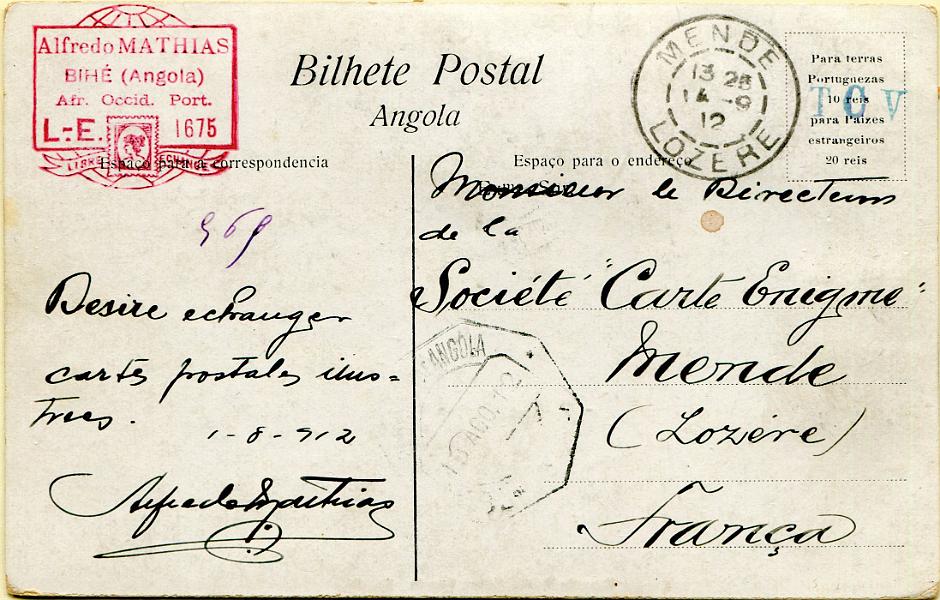 Alfredo MATHIAS
BIHÉ (Angola)
Afr. Occid. Port.
L.-E. 1675
Bilhete Postal
Angola
MENDE
13 25
14 -9
12
LOZÈRE
Para terras
Portuguezas
10 reis
para Paizes
estrangeiros
20 reis
TCV
Espaço para a correspondencia
Espaço para o endereço
969
Desire echanger
cartes postales illus=
trees.
1-8-912
Alfredo Mathias
Monsieur le Directeur
de la
Société "Carte Enigme"
Mende
(Lozére)
França
ANGOLA
AGO. 12